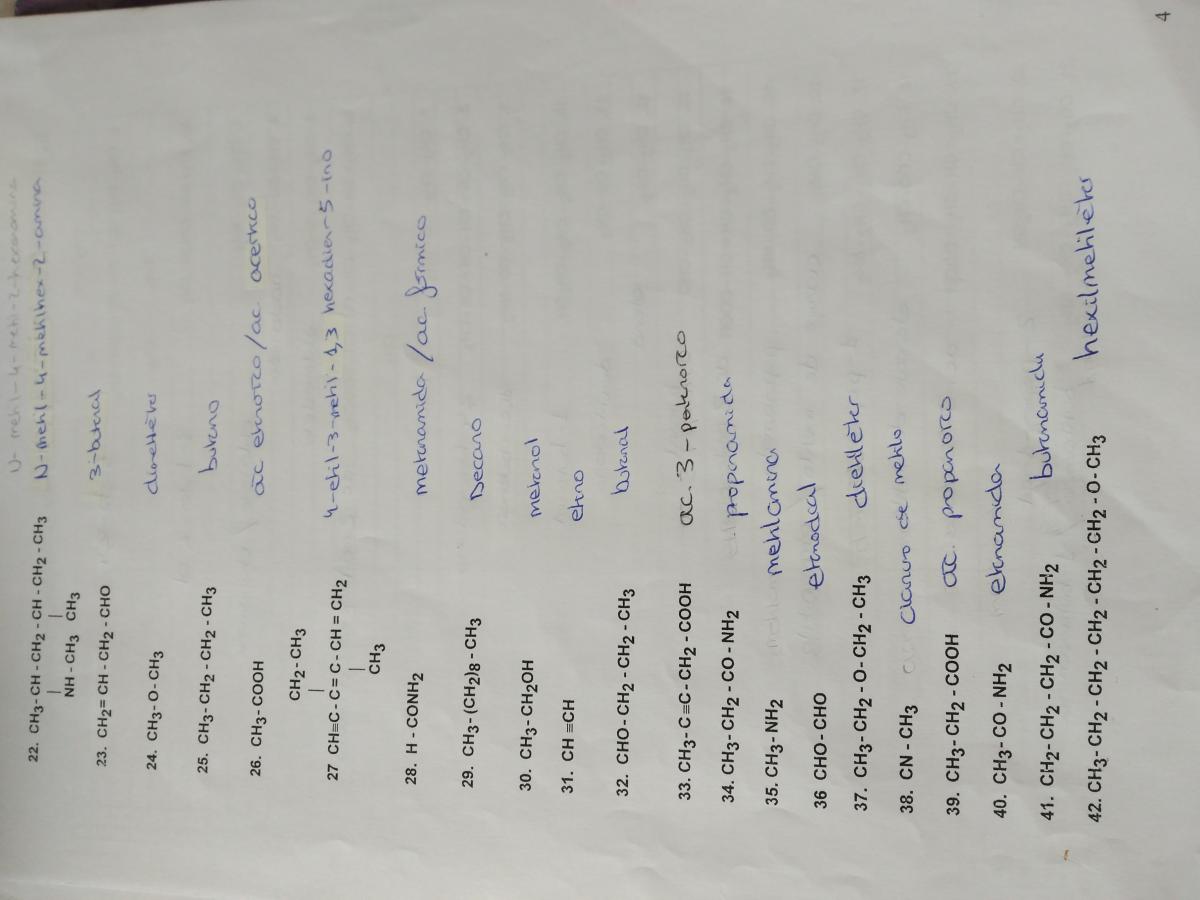 N-metil-4-metil-2-hexanamina
22. CH3- CH - CH2 - CH - CH2 - CH3 N-metil-4-metilhex-2-amina
NH - CH3 CH3
23. CH2= CH - CH2 - CHO 3-butenal
24. CH3 - O - CH3 dimetiléter
25. CH3- CH2 - CH2 - CH3 butano
26. CH3- COOH ác etanoico/ac acetico
CH2 - CH3
27 CH≡C- C= C- CH = CH2 4-etil-3-metil-1,3 hexadien-5-ino
CH3
28. H - CONH2 metanamida / ac fórmico
29. CH3- (CH2)8 - CH3 Decano
30. CH3 - CH2OH metanol
31. CH ≡CH etino
32. CHO- CH2 - CH2 - CH3 butanal
33. CH3- C≡C- CH2 - COOH ac. 3-patenoico
34. CH3- CH2 - CO - NH2 propanamida
35. CH3- NH2 metilamina
36 CHO- CHO etanodial
37. CH3- CH2 - O - CH2 - CH3 dietiléter
38. CN - CH3 cianuro de metilo
39. CH3- CH2 - COOH ác. propanoico
40. CH3- CO - NH2 etanamida
41. CH2- CH2 - CH2 - CO - NH2 butanamida
42. CH3- CH2 - CH2 - CH2 - CH2 - CH2 - O - CH3 hexilmetiléter
4